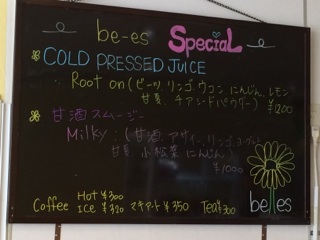 be-es Special
COLD PRESSED JUICE
Root on (ビーツ、リンゴ、ウコン、にんじん、レモン
甘夏、チアシードパウダー) ¥1200
甘酒スムージー
Milky: (甘酒、アサイー、リンゴ、ヨーグルト
甘夏、小松菜、にんじん
¥1000
Hot ¥300
Coffee ICE ¥320 マキアート ¥350 Tea ¥300
be-es